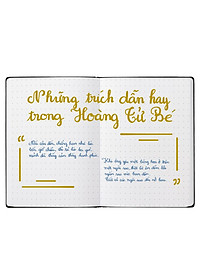 Những trích dẫn hay
trong Hoàng Tử Bé
“
Nếu cậu đến, chẳng hạn như lúc
bốn giờ chiều, thì từ lúc ba giờ,
mình đã thấy cảm thấy hạnh phúc.
Nếu ông yêu một bông hoa ở trên
một ngôi sao, thật là êm đềm khi
ngắm sao vào ban đêm.
Tất cả các ngôi sao đều nở hoa.
”